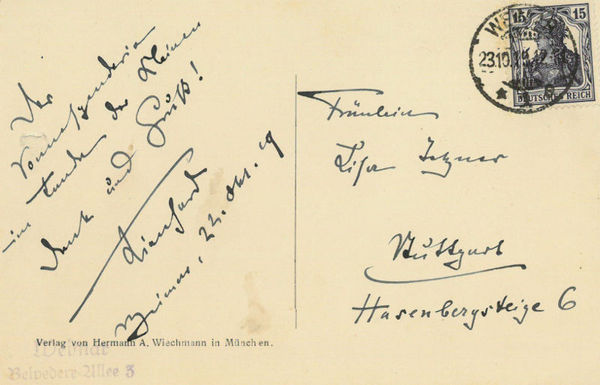 Der
im Lande der Kleinen
Dank und Gruß!
Lienhard
Weimar, 22. Okt. 19
Verlag von Hermann A. Wiechmann in München.
Weimar
Belvedere-Allee 3
15 15
DEUTSCHES REICH
23.10.19
Fräulein
Lisa Tetzner
Stuttgart
Hasenbergsteige 6